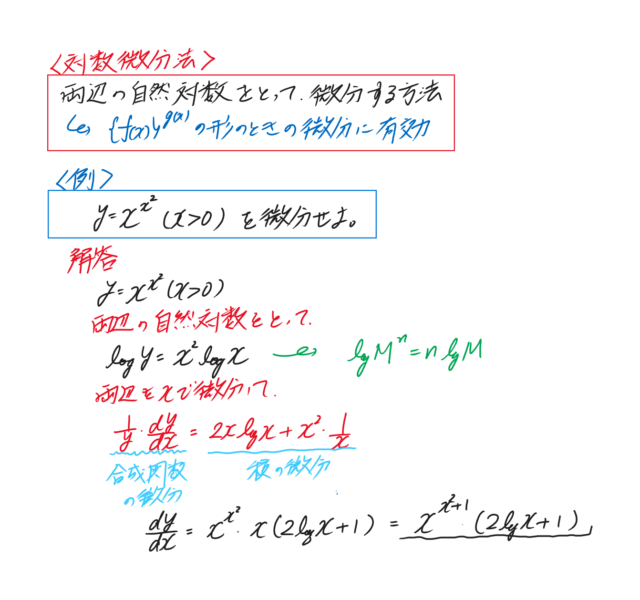 <対数微分法>
両辺の自然対数をとって、微分する方法
↳ {f(x)}^{g(x)} の形のときの微分に有効
<例>
y=x^{x^2} (x>0) を微分せよ。
解答
y=x^{x^2} (x>0)
両辺の自然対数をとって、
log y = x^2 log x → log M^n = n log M
両辺をxで微分して、
1/y · dy/dx = 2x log x + x^2 · 1/x
合成関数の微分 積の微分
dy/dx = x^{x^2} · x(2log x+1) = x^{x^2+1} (2log x+1)